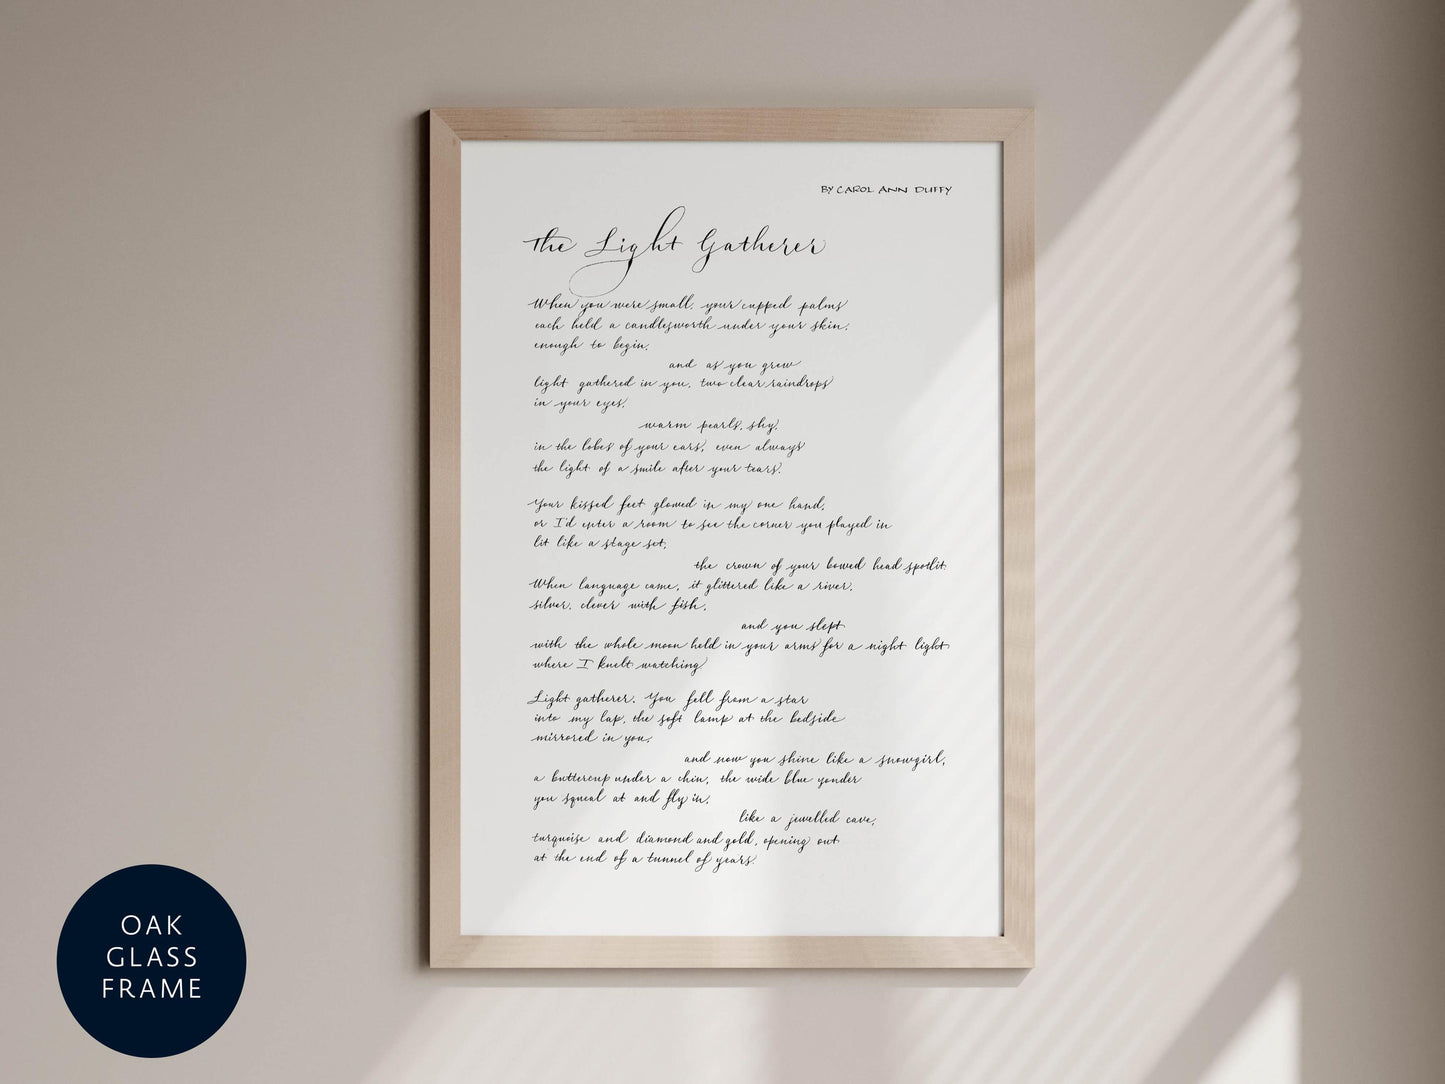 BY CAROL ANN DUFFY
The Light Gatherer
When you were small, your cupped palms
each held a candlesworth under your skin,
enough to begin,
and as you grew
light gathered in you, two clear raindrops
in your eyes,
warm pearls, shy,
in the lobes of your ears, even always
the light of a smile after your tears.
Your kissed feet glowed in my one hand,
or I'd enter a room to see the corner you played in
lit like a stage set,
the crown of your bowed head spotlit.
When language came, it glittered like a river,
silver, clever with fish,
and you slept
with the whole moon held in your arms for a night light
where I knelt watching.
Light gatherer. You fell from a star
into my lap, the soft lamp at the bedside
mirrored in you,
and now you shine like a snowgirl,
a buttercup under a chin, the wide blue yonder
you squeal at and fly in,
like a jewelled cave,
turquoise and diamond and gold, opening out
at the end of a tunnel of years.
OAK
GLASS
FRAME